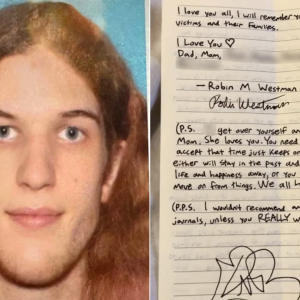 I love you all, I will remember
victims and their families.
I Love You ♡
Dad, Mom,
— Robin M. Westman
Robin Westman
(P.S. get over yourself and
Mom. She loves you. You need
accept that time just keeps on
either will stay in the past and
life and happiness away, or you
move on from things. We all
(P.P.S. I wouldn't recommend
journals, unless you REALLY